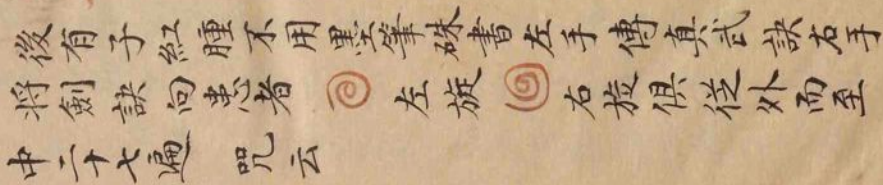 後有子紅腫不用墨筆硃書左手傳真武訣右手
将劍訣向患者 左旋 右旋俱從外而至
中二十七遍 咒云